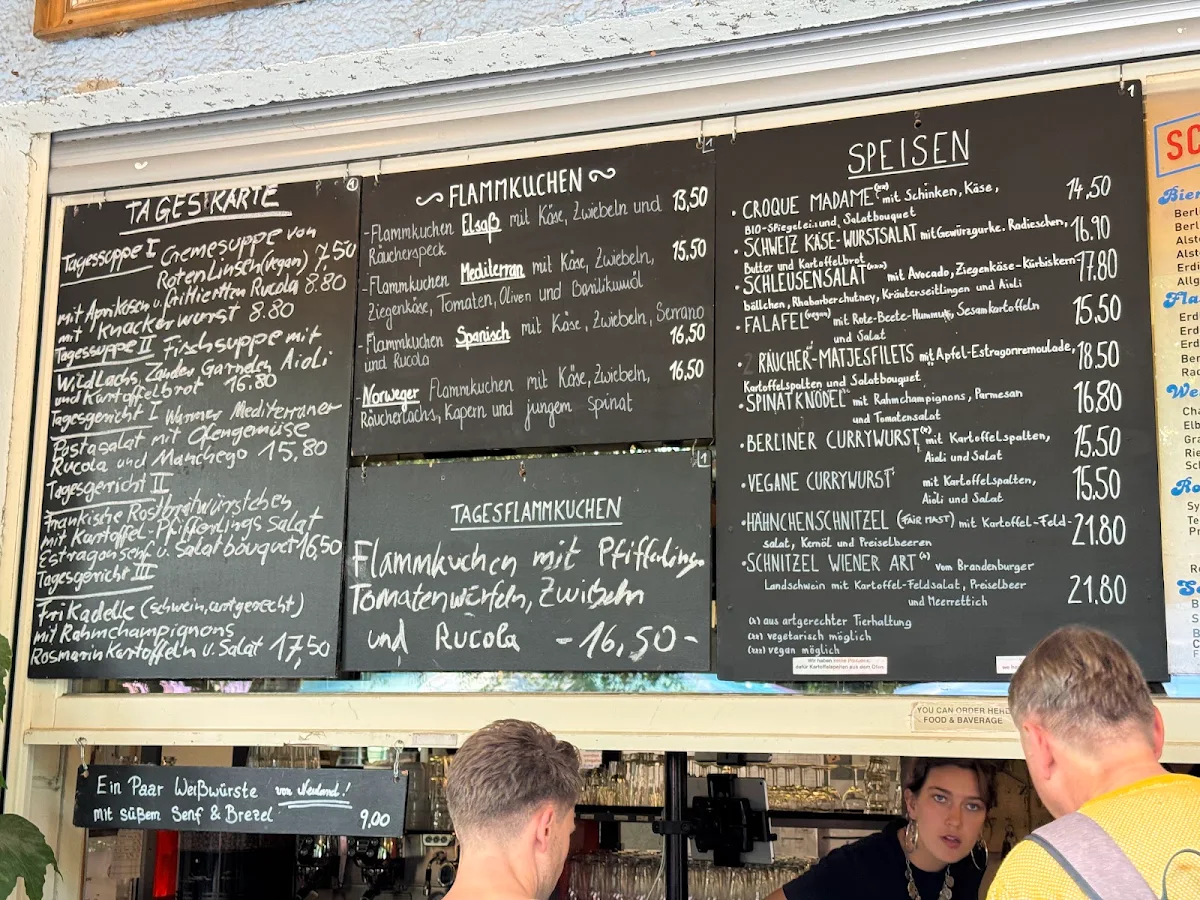 TAGESKARTE
Tagessuppe I Cremesuppe von
Roten Linsen (vegan) 7.50
mit Aprikosen u. Rucola 8.80
mit Knackerwurst 8.80
Tagessuppe II Fischsuppe mit
Wildlachs, Zander, Garnelen Aioli
und Kartoffelbrot 16.80
Tagesgericht I Warmer Mediterraner
Pastasalat mit Ofengemüse
Rucola und Manchego 15.80
Tagesgericht II
Fränkische Rostbratwürstchen
mit Kartoffel-Pfifferlings Salat
Estragonsenf u. Salatbouquet 16,50
Tagesgericht III
Frikadelle (schwein, artgerecht)
mit Rahmchampignons
Rosmarinkartoffeln u. Salat 17,50
~ FLAMMKUCHEN ~
-Flammkuchen Elsaß mit Käse, Zwiebeln und 13,50
Räucherspeck
-Flammkuchen Mediterran mit Käse, Zwiebeln, 15,50
Ziegenkäse, Tomaten, Oliven und Basilikumöl
-Flammkuchen Spanisch mit Käse, Zwiebeln, Serrano
und Rucola 16,50
-Norweger Flammkuchen mit Käse, Zwiebeln, 16,50
Räucherlachs, Kapern und jungem Spinat
TAGESFLAMMKUCHEN
Flammkuchen mit Pfifferlinge
Tomatenwürfeln, Zwibeln
und Rucola -16,50-
SPEISEN
• CROQUE MADAME (xx) mit Schinken, Käse, 14,50
BIO-Spiegelei und Salatbouquet
• SCHWEIZ KÄSE-WURSTSALAT mit Gewürzgurke, Radieschen, 16,90
Butter und Kartoffelbrot
• SCHLEUSENSALAT mit Avocado, Ziegenkäse-Kürbiskern- 17,80
bällchen, Rhabarberchutney, Kräuterseitlingen und Aioli
• FALAFEL (vegan) mit Rote-Beete-Hummus, Sesamkartoffeln 15,50
und Salat
2 RÄUCHER-MATJESFILETS mit Apfel-Estragonremoulade, 18,50
Kartoffelspalten und Salatbouquet
• SPINATKNÖDEL mit Rahmchampignons, Parmesan 16,80
und Tomatensalat
• BERLINER CURRYWURST (x) mit Kartoffelspalten, 15,50
Aioli und Salat
• VEGANE CURRYWURST mit Kartoffelspalten, 15,50
Aioli und Salat
• HÄHNCHENSCHNITZEL (FAIR MAST) mit Kartoffel-Feld- 21,80
salat, Kernöl und Preiselbeeren
• SCHNITZEL WIENER ART (x) vom Brandenburger
Landschwein mit Kartoffel-Feldsalat, Preiselbeer 21,80
und Meerrettich
(x) aus artgerechter Tierhaltung
(xx) vegetarisch möglich
(xxx) vegan möglich
Wir haben keine Pommes
dafür Kartoffelspalten aus dem Ofen
YOU CAN ORDER HERE
FOOD & BAVERAGE
Ein Paar Weißwürste von Neuland!
mit süßem Senf & Brezel 9,00
SC
Bier
Berl
Berl
Alst
Alst
Erdi
Allg
Fla
Erd
Erd
Erd
Ber
Rad
We
Cha
Elb
Gra
Rie
Sc
Ro
Sy
Te
Pr